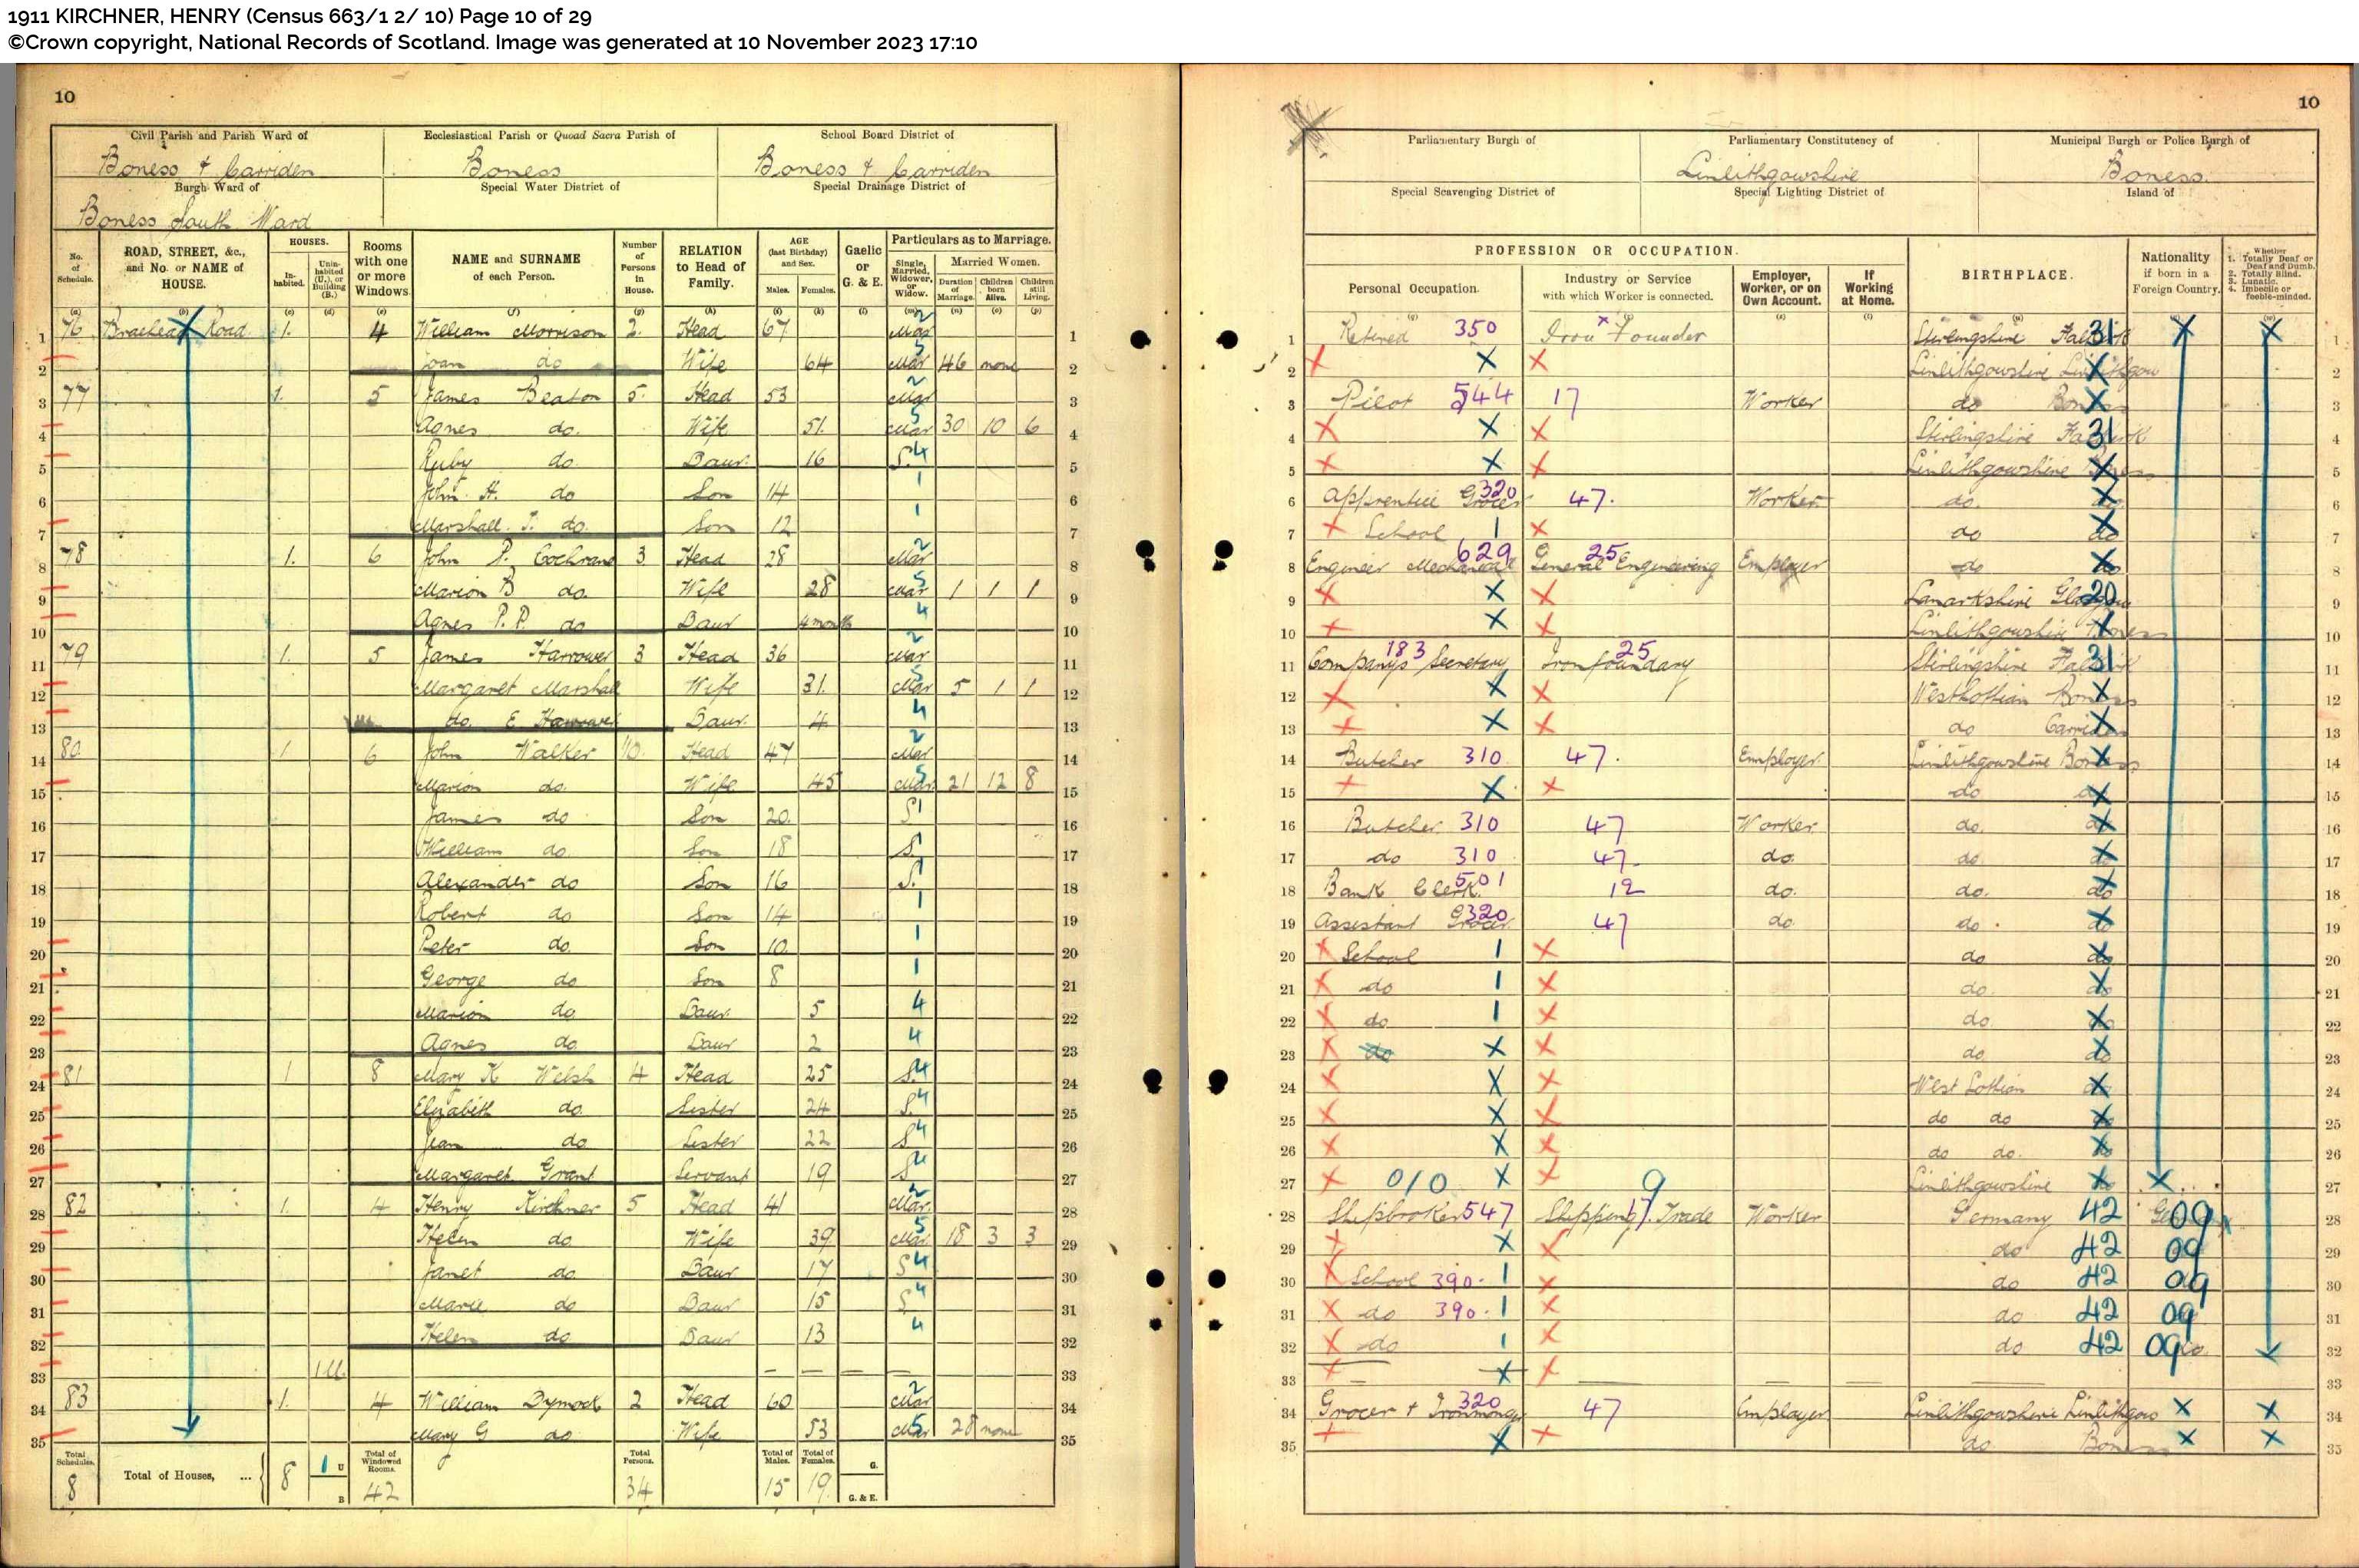 1911 KIRCHNER, HENRY (Census 663/1 2/ 10) Page 10 of 29
©Crown copyright, National Records of Scotland. Image was generated at 10 November 2023 17:10
10
Civil Parish and Parish Ward of Ecclesiastical Parish or Quoad Sacra Parish of School Board District of
Boness & Carriden Boness Boness & Carriden
Burgh Ward of Special Water District of Special Drainage District of
Boness South Ward
No. of Schedule. ROAD, STREET, &c., and No. or NAME of HOUSE. HOUSES. Inhabited. Uninhabited (U.), or Building (B.) Rooms with one or more Windows NAME and SURNAME of each Person. Number of Persons in House. RELATION to Head of Family. AGE (last Birthday) and Sex. Males. Females. Gaelic or G. & E. Particulars as to Marriage. Single, Married, Widower, or Widow. Married Women. Duration of Marriage. Children born Alive. Children still Living.
1 76 Braehead Road 1. 4 William Morrison 2. Head 67 Mar 2 1
2 Joan do Wife 64 Mar 5 46 none 2
3 77 1. 5 James Beaton 5. Head 53 Mar 2 3
4 Agnes do. Wife 51. Mar 5 30 10 6 4
5 Ruby do. Daur. 16 S. 4 5
6 John H. do Son 14 1 6
7 Marshall. do. Son 12 1 7
8 78 1. 6 John P. Cochrane 3 Head 28 Mar 2 8
9 Marion B do. Wife 28 Mar 5 1 1 1 9
10 Agnes P.P. do Daur 4 month 4 10
11 79 1. 5 James Harrower 3 Head 36 Mar 2 11
12 Margaret Marshall Wife 31. Mar 5 5 1 1 12
13 do. E Harrower Daur. 4 4 13
14 80. 1 6 John Walker 10. Head 47 Mar 2 14
15 Marion do. Wife 45 Mar. 5 21 12 8 15
16 James do Son 20. S 1 16
17 William do. Son 18 S. 1 17
18 Alexander do Son 16 S. 1 18
19 Robert do Son 14 1 19
20 Peter do. Son 10. 1 20
21 George do Son 8 1 21
22 Marion do Daur. 5 4 22
23 Agnes do. Daur 2 4 23
24 81 1 8 Mary K Welsh 4 Head 25 S. 4 24
25 Elizabeth do. Sister 24 S. 4 25
26 Jean do. Sister 22 S 4 26
27 Margaret Grant Servant 19 S 4 27
28 82 1. 4 Henry Kirchner 5 Head 41 Mar. 2 28
29 Helen do. Wife 39 Mar 5 18 3 3 29
30 Janet do. Daur 17 S 4 30
31 Marie do Daur 15 S 4 31
32 Helen do Daur 13 4 32
33 1U. 33
34 83 1. 4 William Dymock 2 Head 60 Mar 2 34
35 Mary G do Wife 53 Mar 5 28 none 35
Total Schedules. 8 Total of Houses, ... 8 1 U B Total of Windowed Rooms. 42 Total Persons. 34 Total of Males. 15 Total of Females. 19. G. G. & E.
10
Parliamentary Burgh of Parliamentary Constitutency of Municipal Burgh or Police Burgh of
Linlithgowshire Boness.
Special Scavenging District of Special Lighting District of Island of
PROFESSION OR OCCUPATION. Personal Occupation. Industry or Service with which Worker is connected. Employer, Worker, or on Own Account. If Working at Home. BIRTHPLACE. Nationality if born in a Foreign Country. Whether 1. Totally Deaf or Deaf and Dumb. 2. Totally Blind. 3. Lunatic. 4. Imbecile or feeble-minded.
1 Retired 350 Iron Founder Stirlingshire Falkirk 31 X X 1
2 X X X Linlithgowshire Linlithgow X 2
3 Pilot 544 17 Worker do Boness X 3
4 X X X Stirlingshire Falkirk 31 4
5 X X X Linlithgowshire Boness X 5
6 Apprentice Grocer 320 47. Worker. do. do X 6
7 X School 1 X do do X 7
8 Engineer Mechanical 629 General Engineering 25 Employer do do X 8
9 X X X Lanarkshire Glasgow 20 9
10 X X X Linlithgowshire Boness X 10
11 Companys Secretary 183 Ironfoundary 25 Stirlingshire Falkirk 31 11
12 X X X West Lothian Boness X 12
13 X X X do Carriden X 13
14 Butcher 310 47. Employer. Linlithgowshire Boness X 14
15 X X X do do X 15
16 Butcher. 310 47 Worker do. do X 16
17 do 310 47. do. do do X 17
18 Bank Clerk. 501 12 do. do. do X 18
19 Assistant Grocer. 320 47 do do do X 19
20 X School 1 X do do X 20
21 X do 1 X do. do X 21
22 X do 1 X do do X 22
23 X do X X do do X 23
24 X X X West Lothian do X 24
25 X X X do do X 25
26 X X X do do. X 26
27 X 010 X X 9 Linlithgowshire X X 27
28 Shipbroker 547 Shipping Trade 17 Worker Germany 42 09 28
29 X X X do 42 09 29
30 X School 390. 1 X do 42 09 30
31 X do 390. 1 X do 42 09 31
32 X do 1 X do 42 09 do. 32
33 X X X 33
34 Grocer + Ironmonger 320 47 Employer Linlithgowshire Linlithgow X X 34
35 X X X do Boness X X 35